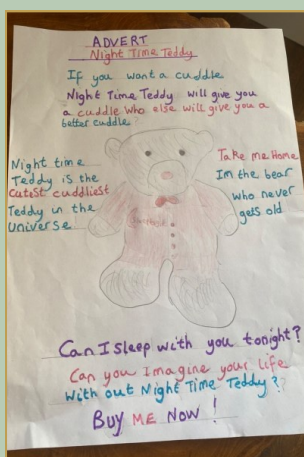 ADVERT
Night Time Teddy
If you want a cuddle
Night Time Teddy will give you
a cuddle who else will give you a
better cuddle
Night time
Teddy is the
cutest cuddliest
Teddy in the
universe
Take me Home
Im the bear
who never
gets old
Can I sleep with you tonight?
Can you Imagine your life
with out Night Time Teddy??
Buy me Now!